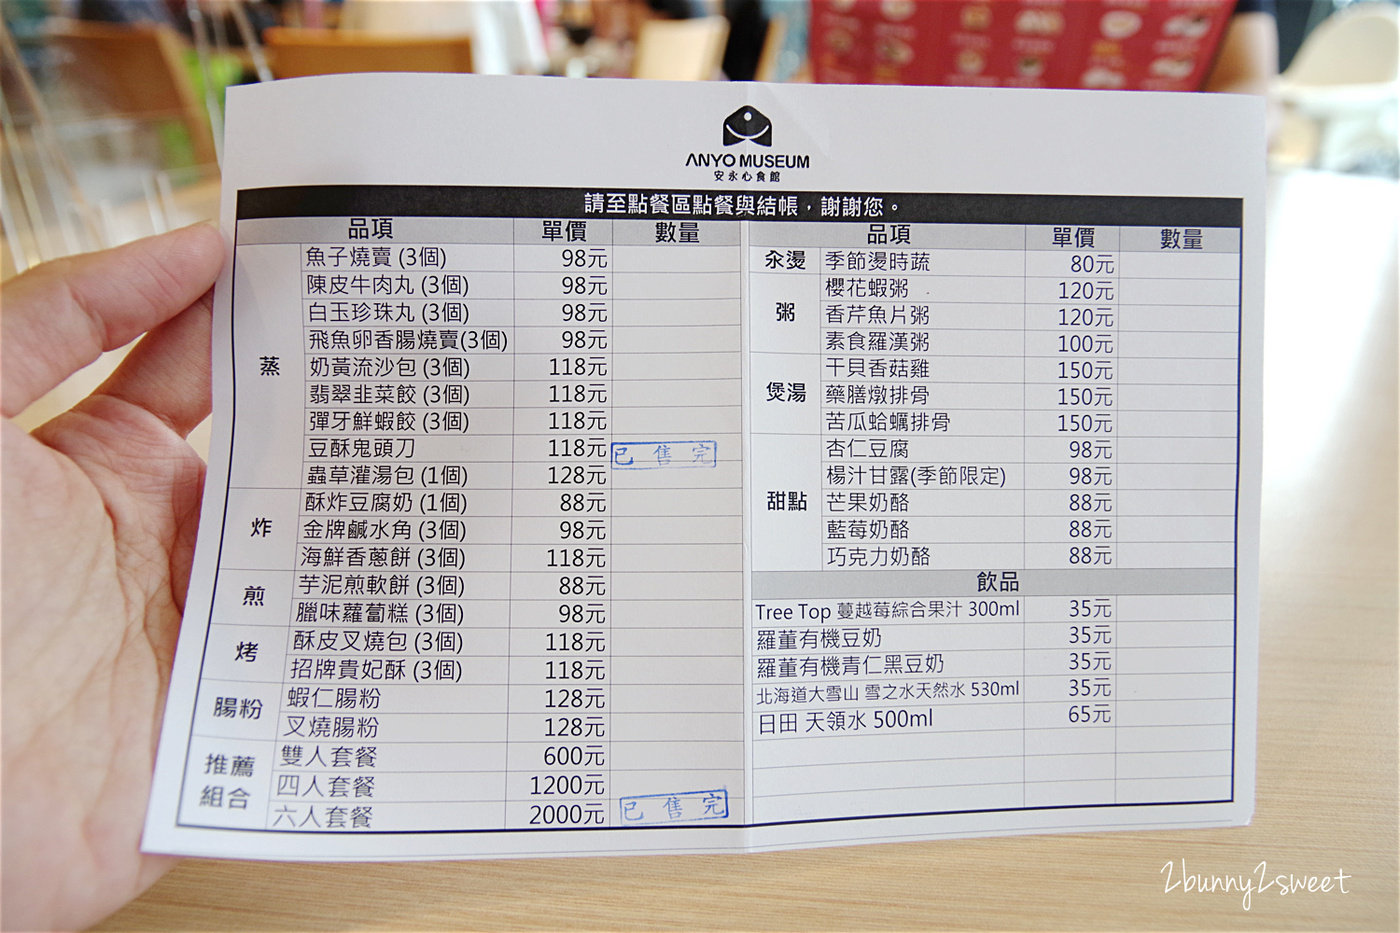 ANYO MUSEUM
安永心食館
請至點餐區點餐與結帳，謝謝您。
品項 單價 數量
蒸
魚子燒賣 (3個) 98元
陳皮牛肉丸 (3個) 98元
白玉珍珠丸 (3個) 98元
飛魚卵香腸燒賣(3個) 98元
奶黃流沙包 (3個) 118元
翡翠韭菜餃 (3個) 118元
彈牙鮮蝦餃 (3個) 118元
豆酥鬼頭刀 118元 已售完
蟲草灌湯包 (1個) 128元
炸
酥炸豆腐奶 (1個) 88元
金牌鹹水角 (3個) 98元
海鮮香蔥餅 (3個) 118元
煎
芋泥煎軟餅 (3個) 88元
臘味蘿蔔糕 (3個) 98元
烤
酥皮叉燒包 (3個) 118元
招牌貴妃酥 (3個) 118元
腸粉
蝦仁腸粉 128元
叉燒腸粉 128元
推薦
組合
雙人套餐 600元
四人套餐 1200元
六人套餐 2000元 已售完
品項 單價 數量
汆燙
季節燙時蔬 80元
粥
櫻花蝦粥 120元
香芹魚片粥 120元
素食羅漢粥 100元
煲湯
干貝香菇雞 150元
藥膳燉排骨 150元
苦瓜蛤蠣排骨 150元
甜點
杏仁豆腐 98元
楊汁甘露(季節限定) 98元
芒果奶酪 88元
藍莓奶酪 88元
巧克力奶酪 88元
飲品
Tree Top 蔓越莓綜合果汁 300ml 35元
羅董有機豆奶 35元
羅董有機青仁黑豆奶 35元
北海道大雪山 雪之水天然水 530ml 35元
日田 天領水 500ml 65元
2bunny2sweet